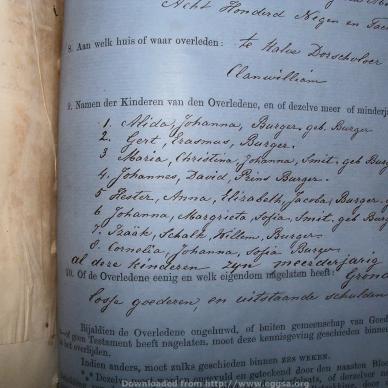 Acht Honderd Negen en
8. Aan welk huis of waar overleden: te Kalve Dorschvloer
Clanwilliam
9. Namen der Kinderen van den Overledene, en of dezelve meer of minderj
1. Alida, Johanna, Burger, geb Burger
2. Gert, Erasmus, Burger.
3 Maria, Christina, Johanna, Smit, geb Burg
4. Johannes, David, Prins Burger.
5 Hester, Anna, Elizabeth, Jacoba, Burger,
6 Johanna, Margrieta, Sofia, Smit, geb Burg
7. Izaak, Schalk, Willem, Burger
8. Cornelia, Johanna, Sofia Burger
Al deze kinderen zyn meerderjarig
10. Of de Overledene eenig en welk eigendom nagelaten heeft: Grond
losse goederen, en uitstaande schulden
Bijaldien de Overledene ongehuwd, of buiten gemeenschap van Goed
—of geen Testament heeft nagelaten, moet deze kennisgeving geschieden binnen
het overlijden.
Indien anders, moet zulks geschieden binnen ZES WEKEN.
Deze moet zijn ingevuld en geteekend door den naasten Bloe
Downloaded from http://www.eggsa.org/